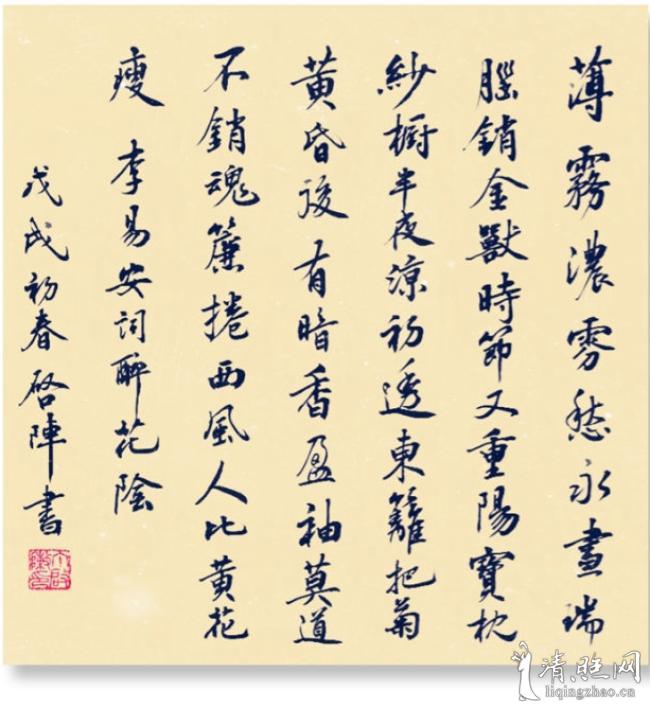 薄霧濃雰愁永晝瑞
腦銷金獸時節又重陽寶枕
紗橱半夜涼初透東籬把菊
黃昏後有暗香盈袖莫道
不銷魂簾捲西風人比黃花
瘦 李易安詞醉花陰
戊戌初春啓陣書
清旺网
liqingzhao.cn